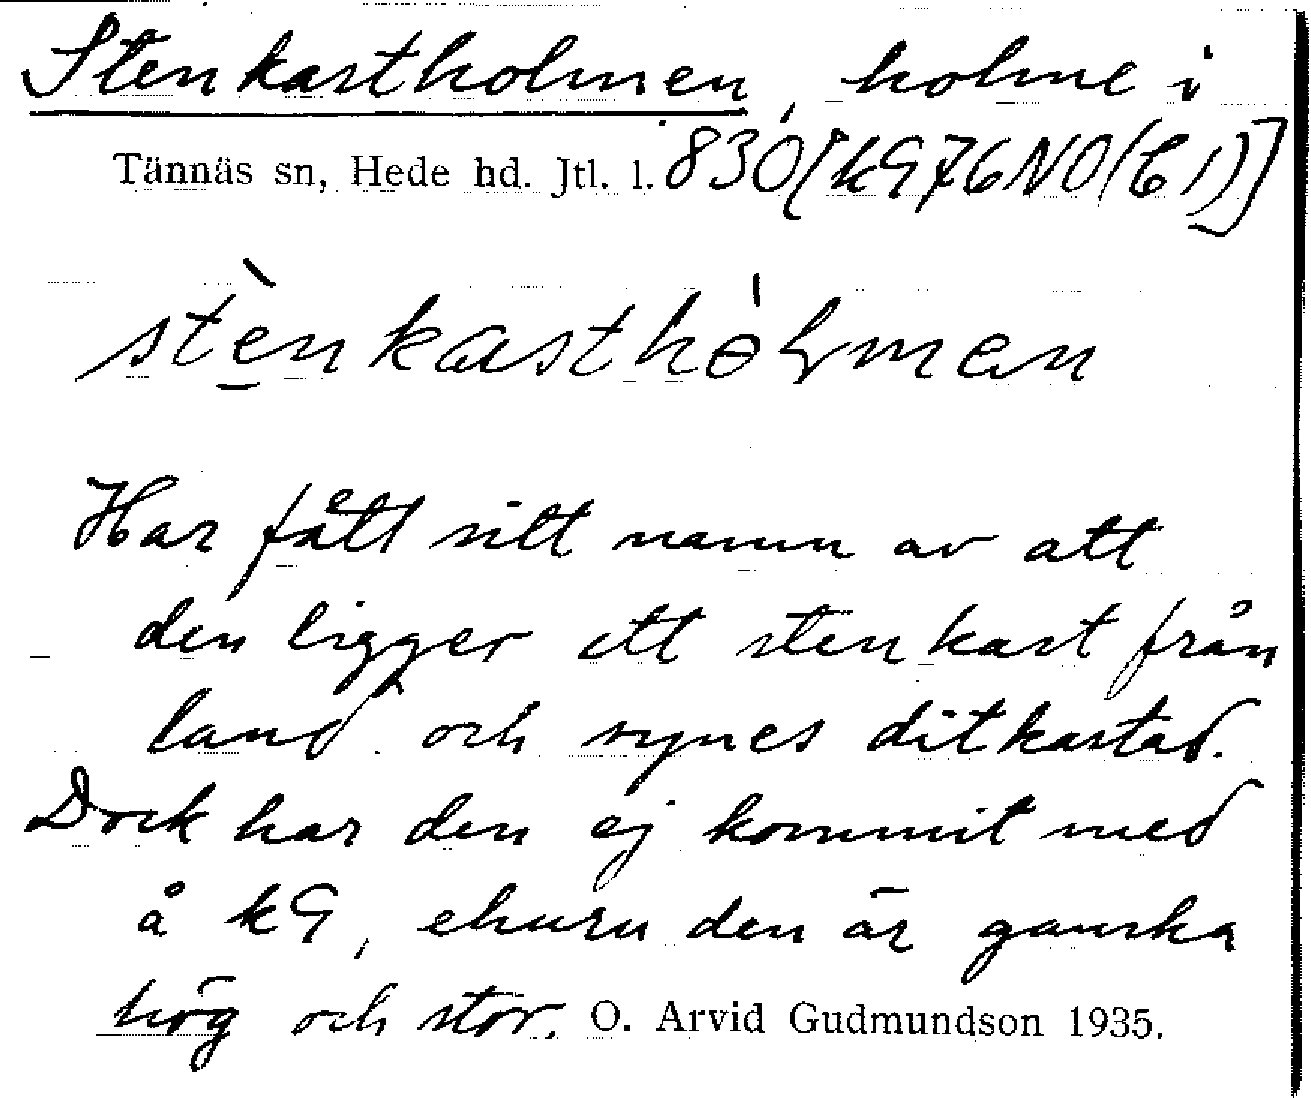 Stenkastholmen, holme i
Tännäs sn, Hede hd. Jtl. l. 830[kG76NO(C1)]
stè̱nkasthɵ́ɽmen
Har fått sitt namn av att
den ligger ett stenkast från
land och synes ditkastad.
Dock har den ej kommit med
å kG, ehuru den är ganska
hög och stor. O. Arvid Gudmundson 1935.